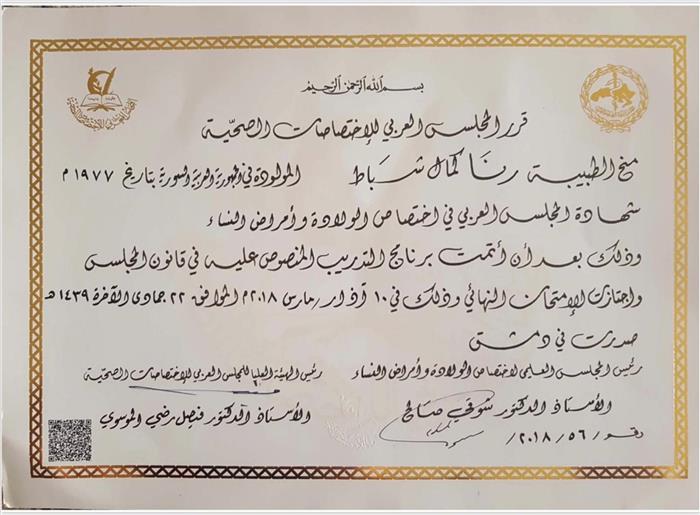 بسم الله الرحمن الرحيم
قرر المجلس العربي للاختصاصات الصحيّة
منح الطبيبة رنا كمال شباط المولودة في الجمهورية العربية السورية بتاريخ ١٩٧٧ م
شهادة المجلس العربي في اختصاص الولادة وأمراض النساء
وذلك بعد أن أتمت برنامج التدريب المنصوص عليه في قانون المجلس
واجتازت الإمتحان النهائي وذلك في ١٠ آذار/مارس ٢٠١٨م الموافق ٢٢ جمادى الآخرة ١٤٣٩ هـ
صدرت في دمشق
رئيس المجلس العلمي لاختصاص الولادة وأمراض النساء رئيس الهيئة العليا للمجلس العربي للاختصاصات الصحية
الأستاذ الدكتور شوقي صالح الأستاذ الدكتور فيصل رضي الموسوي
٢٠١٨/٥٦/